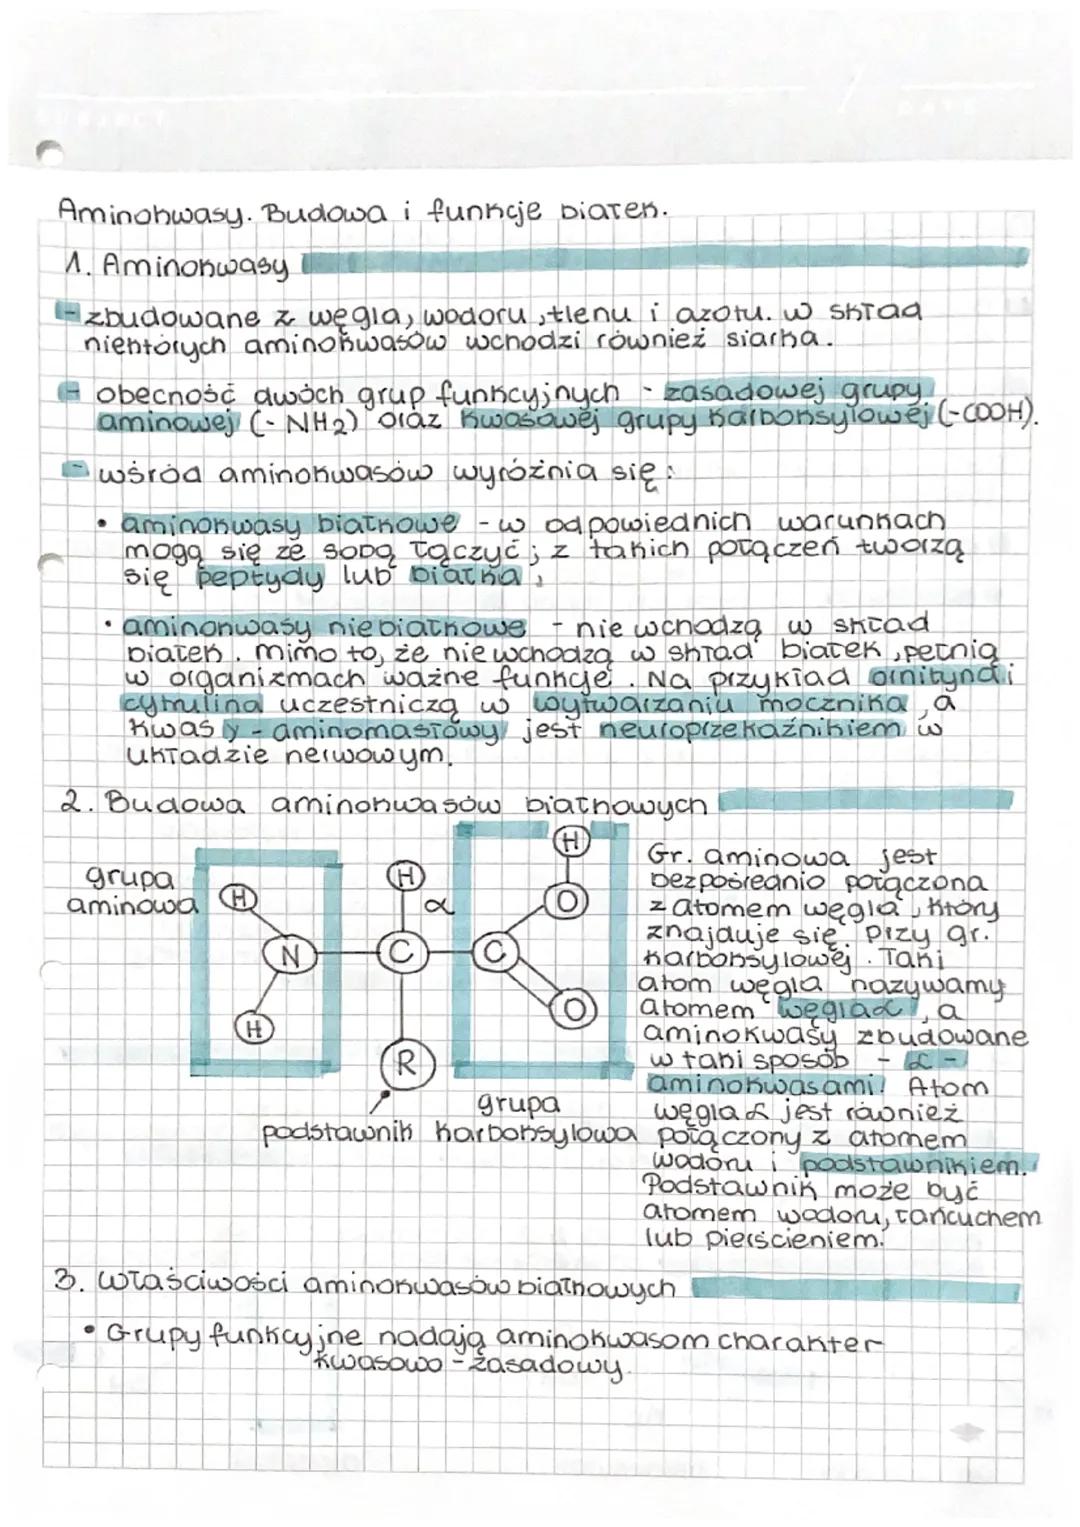 Aminokwasy. Budowa i funkcje białek.
1. Aminokwasy
- zbudowane z węgla, wodoru, tlenu i azotu. w skład
niektórych aminokwasów wchodzi również siarka.
- obecność dwóch grup funkcyjnych - zasadowej grupy
aminowej (-NH2) oraz kwasowej grupy karboksylowej (-COOH).
- wśród aminokwasów wyróżnia się:
• aminokwasy białkowe - w odpowiednich warunkach
mogą się ze sobą łączyć; z takich połączeń tworzą
się peptydy lub białka,
• aminokwasy niebiałkowe - nie wchodzą w skład
białek. mimo to, że nie wchodzą w skład białek, pełnią
w organizmach ważne funkcje. Na przykład ornityna i
cytrulina uczestniczą w wytwarzaniu mocznika, a
kwas γ - aminomasłowy jest neuroprzekaźnikiem w
układzie nerwowym.
2. Budowa aminokwasów białkowych
grupa
aminowa
H
H
N
H
α
C
R
C
H
O
O
podstawnik
grupa
karboksylowa
Gr. aminowa jest
bezpośrednio połączona
z atomem węgla, który
znajduje się przy gr.
karboksylowej. Taki
atom węgla nazywamy
atomem węgla α, a
aminokwasy zbudowane
w taki sposób - α -
aminokwasami! Atom
węgla α jest również
połączony z atomem
wodoru i podstawnikiem.
Podstawnik może być
atomem wodoru, łańcuchem
lub pierścieniem.
3. Właściwości aminokwasów białkowych
• Grupy funkcyjne nadają aminokwasom charakter
kwasowo - zasadowy.